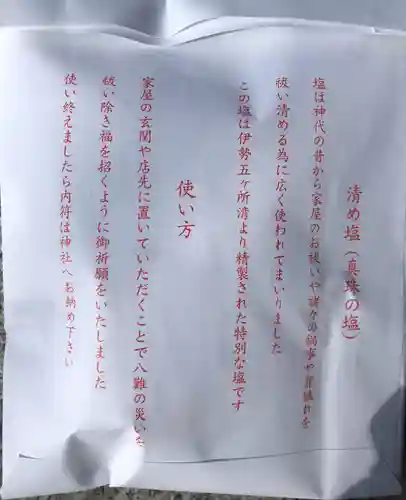 清め塩(真珠の塩)
塩は神代の昔から家屋のお祓いや諸々の禍事や罪穢れを
祓い清める為に広く使われてまいりました
この塩は伊勢五ヶ所湾より精製された特別な塩です
使い方
家屋の玄関や店先に置いていただくことで八難の災いを
祓い除き福を招くように御祈願をいたしました
使い終えましたら内符は神社へお納め下さい